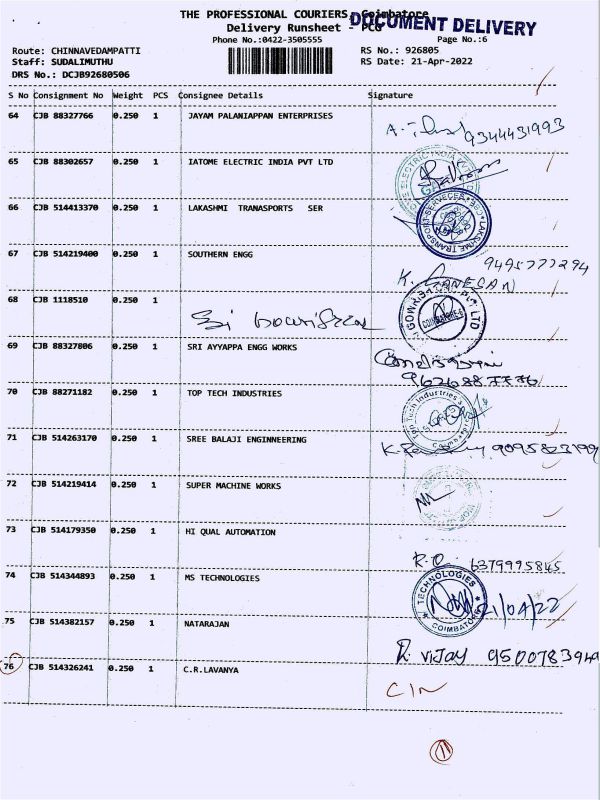 THE PROFESSIONAL COURIERS, Coimbatore
DOCUMENT DELIVERY
Delivery Runsheet - PCG
Phone No.:0422-3505555 Page No.:6
Route: CHINNAVEDAMPATTI RS No.: 926805
Staff: SUDALIMUTHU RS Date: 21-Apr-2022
DRS No.: DCJB92680506
S No Consignment No Weight PCS Consignee Details Signature
64 CJB 88327766 0.250 1 JAYAM PALANIAPPAN ENTERPRISES 9344431993
65 CJB 88302657 0.250 1 IATOME ELECTRIC INDIA PVT LTD
66 CJB 514413370 0.250 1 LAKASHMI TRANASPORTS SER
67 CJB 514219400 0.250 1 SOUTHERN ENGG 9495777294
K. GANESAN
68 CJB 1118510 0.250 1
69 CJB 88327806 0.250 1 SRI AYYAPPA ENGG WORKS
9626887776
70 CJB 88271182 0.250 1 TOP TECH INDUSTRIES
71 CJB 514263170 0.250 1 SREE BALAJI ENGINNEERING 9095823199
72 CJB 514219414 0.250 1 SUPER MACHINE WORKS
73 CJB 514179350 0.250 1 HI QUAL AUTOMATION
R.O 6379995845
74 CJB 514344893 0.250 1 MS TECHNOLOGIES
TECHNOLOGIES COIMBATORE 21/04/22
75 CJB 514382157 0.250 1 NATARAJAN
R. VIJAY 9500783949
76 CJB 514326241 0.250 1 C.R.LAVANYA
CIN
1